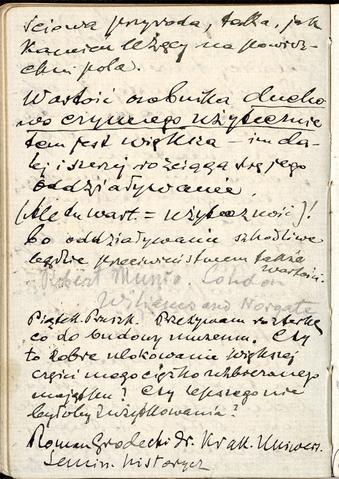 ściowa przyroda, taka, jak
kamień leżący na powierz-
chni pola.
Wartość osobnika ducho-
wo czynnego użytecznie
tem jest większa – im da-
lej i szerzej rozciąga się jego
oddziaływanie
(Ale tu wart. = użyteczność)!
bo oddziaływanie szkodliwe
będzie przeciwieństwem także
wartości.
Robert Munro. London
Williams and Norgate
Piątek. Przeżywam rozterkę
co do budowy muzeum. Czy
to dobre ulokowanie większej
części mego ciężko uzbieranego
majątku? Czy lepszego nie
byłoby zużytkowania?
Roman Grodecki dr. Krak. Uniwer.
Semin. history